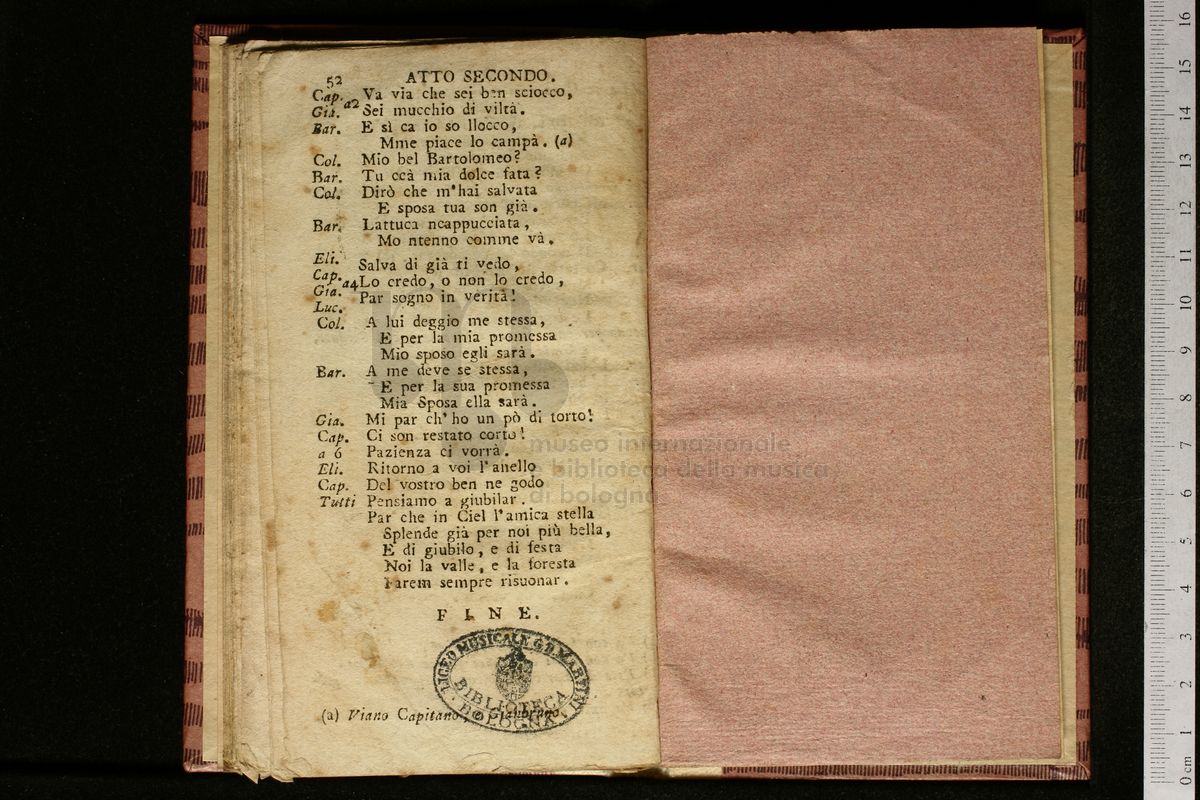 52 ATTO SECONDO.
Cap. a2 Va via che sei ben sciocco,
Gia. Sei mucchio di viltà.
Bar. E sì ca io so llocco,
Mme piace lo campà. (a)
Col. Mio bel Bartolomeo?
Bar. Tu ccà mia dolce fata?
Col. Dirò che m'hai salvata
E sposa tua son già.
Bar. Lattuca ncappucciata,
Mo ntenno comme và.
Eli. Salva di già ti vedo,
Cap. a4 Lo credo, o non lo credo,
Gia. Par sogno in verità!
Luc.
Col. A lui deggio me stessa,
E per la mia promessa
Mio sposo egli sarà.
Bar. A me deve se stessa,
E per la sua promessa
Mia Sposa ella sarà.
Gia. Mi par ch'ho un pò di torto!
Cap. Ci son restato corto!
a 6 Pazienza ci vorrà.
Eli. Ritorno a voi l'anello
Cap. Del vostro ben ne godo
Tutti Pensiamo a giubilar.
Par che in Ciel l'amica stella
Splende già per noi più bella,
E di giubilo, e di festa
Noi la valle, e la foresta
Farem sempre risuonar.
FINE.
LICEO MUSICALE G.B. MARTINI
BIBLIOTECA
BOLOGNA
(a) Viano Capitano,
museo internazionale
e biblioteca della musica
di bologna
16
15
14
13
12
11
10
9
8
7
6
5
4
3
2
1
0 cm